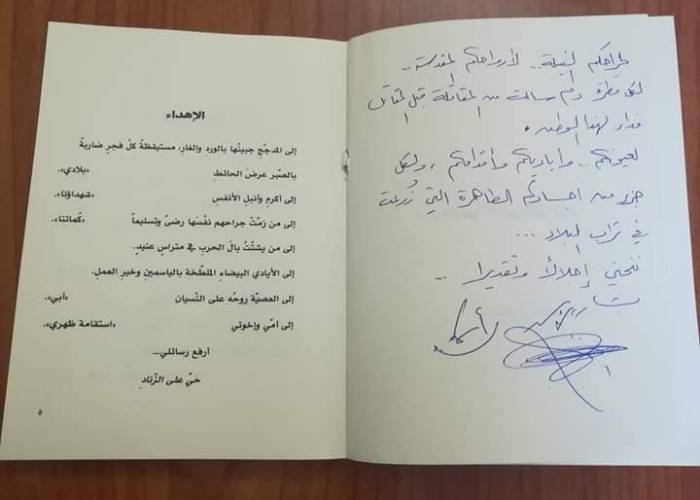 لجراحكم النبيلة.. لأرواحكم المقدسة..
لكل قطرة دم سالت من المقاتلة قبل المقاتل
فداء لهذا الوطن.
لعيونكم.. وأياديكم وأقدامكم، ولكل
جزء من أجسادكم الطاهرة التي زُرعت
في تراب البلاد...
ننحني إجلالاً وتقديرا..
الإهداء
إلى المدجّج جبينُها بالوردِ والغارِ، مستيقظةً كلّ فجرٍ ضاربةً
بالصّبر عرضَ الحائطِ «بلادي».
إلى أكرمِ وأنبلِ الأنفسِ «شهداؤنا».
إلى من زمّتْ جراحهم نفسَها رضىً وتسليماً «كُماتنا».
إلى من يشتّتُ بالَ الحربِ في متراسٍ عنيدٍ.
إلى الأيادي البيضاءِ الملطّخة بالياسمين وخيرِ العملِ.
إلى العصيّة روحُه على النّسيان «أبي».
إلى أمّي وإخوتي «استقامة ظهري».
أرفع رسائلي...
حَيّ على الزّنادِ
٥